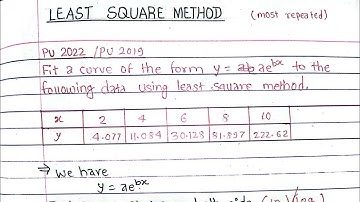 LEAST SQUARE METHOD (most repeated)
PU 2022 / PU 2019
Fit a curve of the form y = ab ae^bx to the
following data using least square method.
x 2 4 6 8 10
y 4.077 11.084 30.128 81.897 222.62
→ we have
y = ae^bx